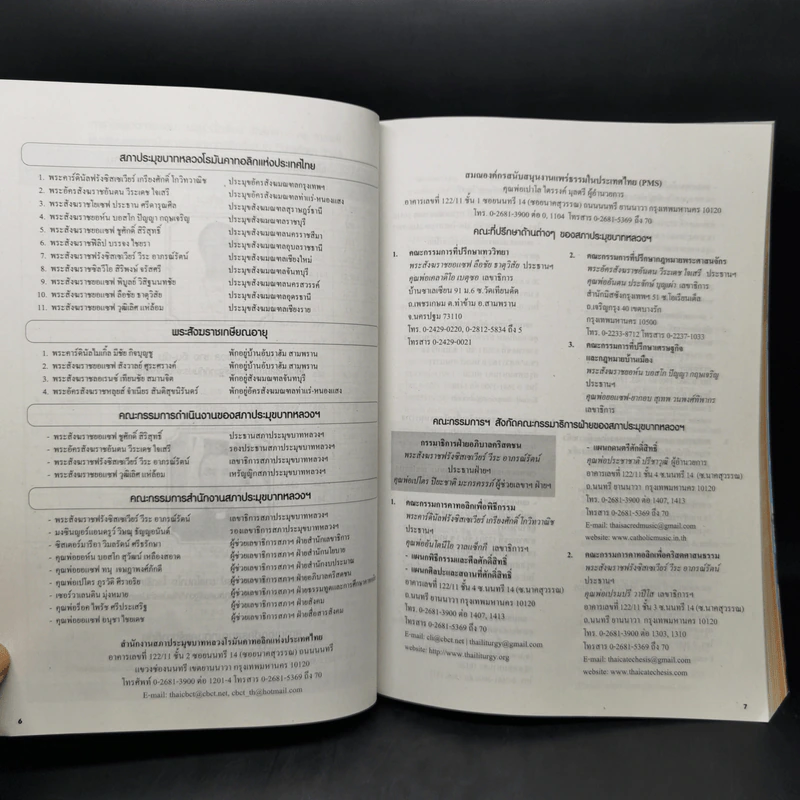 สภาประมุขบาทหลวงโรมันคาทอลิกแห่งประเทศไทย
1. พระคาร์ดินัลฟรังซิสเซเวียร์ เกรียงศักดิ์ โกวิทวาณิช ประมุขอัครสังฆมณฑลกรุงเทพฯ
2. พระอัครสังฆราชอันตน วีระเดช ใจเสรี ประมุขอัครสังฆมณฑลท่าแร่-หนองแสง
3. พระสังฆราชโยเซฟ ประธาน ศรีดารุณศีล ประมุขสังฆมณฑลสุราษฎร์ธานี
4. พระสังฆราชยอห์น บอสโก ปัญญา กฤษเจริญ ประมุขสังฆมณฑลราชบุรี
5. พระสังฆราชยอแซฟ ชูศักดิ์ สิริสุทธิ์ ประมุขสังฆมณฑลนครราชสีมา
6. พระสังฆราชฟิลิป บรรจง ไชยรา ประมุขสังฆมณฑลอุบลราชธานี
7. พระสังฆราชฟรังซิสเซเวียร์ วีระ อาภรณ์รัตน์ ประมุขสังฆมณฑลเชียงใหม่
8. พระสังฆราชซิลวีโอ สิริพงษ์ จรัสศรี ประมุขสังฆมณฑลจันทบุรี
9. พระสังฆราชยอแซฟ พิบูลย์ วิสิฐนนทชัย ประมุขสังฆมณฑลนครสวรรค์
10. พระสังฆราชยอแซฟ ลือชัย ธาตุวิสัย ประมุขสังฆมณฑลอุดรธานี
11. พระสังฆราชยอแซฟ วุฒิเลิศ แห่ล้อม ประมุขสังฆมณฑลเชียงราย
พระสังฆราชเกษียณอายุ
1. พระคาร์ดินัลไมเกิ้ล มีชัย กิจบุญชู พักอยู่บ้านอับราฮัม สามพราน
2. พระสังฆราชยอแซฟ สังวาลย์ ศุระศรางค์ พักอยู่บ้านอับราฮัม สามพราน
3. พระสังฆราชลอเรนซ์ เทียนชัย สมานจิต พักอยู่สังฆมณฑลจันทบุรี
4. พระอัครสังฆราชหลุยส์ จำเนียร สันติสุขนิรันดร์ พักอยู่อัครสังฆมณฑลท่าแร่-หนองแสง
คณะกรรมการดำเนินงานของสภาประมุขบาทหลวงฯ
- พระสังฆราชยอแซฟ ชูศักดิ์ สิริสุทธิ์ ประธานสภาประมุขบาทหลวงฯ
- พระอัครสังฆราชอันตน วีระเดช ใจเสรี รองประธานสภาประมุขบาทหลวงฯ
- พระสังฆราชฟรังซิสเซเวียร์ วีระ อาภรณ์รัตน์ เลขาธิการสภาประมุขบาทหลวงฯ
- พระสังฆราชยอแซฟ วุฒิเลิศ แห่ล้อม เหรัญญิกสภาประมุขบาทหลวงฯ
คณะกรรมการสำนักงานสภาประมุขบาทหลวงฯ
- พระสังฆราชฟรังซิสเซเวียร์ วีระ อาภรณ์รัตน์ เลขาธิการสภาประมุขบาทหลวงฯ
- มงซินญอร์แอนดรูว์ วิษณุ ธัญญอนันต์ รองเลขาธิการสภาประมุขบาทหลวงฯ
- ซิสเตอร์มารีอา วิมลรัตน์ ศรีธรรักษา ผู้ช่วยเลขาธิการสภาฯ ฝ่ายสำนักเลขาธิการ
- คุณพ่อยอห์น บอสโก สุวัฒน์ เหลืองสอาด ผู้ช่วยเลขาธิการสภาฯ ฝ่ายสำนักนโยบาย
- คุณพ่อยอแซฟ ทนุ เจษฎาพงศ์ภักดี ผู้ช่วยเลขาธิการสภาฯ ฝ่ายสำนักงบประมาณ
- คุณพ่อเปโตร ศีราอริย ผู้ช่วยเลขาธิการสภาฯ ฝ่ายอภิบาลคริสตชน
- เชอร์วาเลนติน มุ่งหมาย ผู้ช่วยเลขาธิการสภาฯ ฝ่ายธรรมทูตและการศึกษา
- คุณพ่อร็อค ไพรัช ศรีประเสริฐ ผู้ช่วยเลขาธิการสภาฯ ฝ่ายสังคม
- คุณพ่อยอแซฟ อนุชา ไชยเดช ผู้ช่วยเลขาธิการสภาฯ ฝ่ายสื่อสารสังคม
สำนักงานสภาประมุขบาทหลวงโรมันคาทอลิกแห่งประเทศไทย
อาคารเลขที่ 122/11 ชั้น 2 ซอยนนทรี 14 (ซอยนาคสุวรรณ) ถนนนนทรี
แขวงช่องนนทรี เขตยานนาวา กรุงเทพมหานคร 10120
โทรศัพท์ 0-2681-3900 ต่อ 1201-4 โทรสาร 0-2681-5369 ถึง 70
E-mail: thaicbct@cbct.net, cbct_th@hotmail.com
6
สมณองค์กรสนับสนุนงานแพร่ธรรมในประเทศไทย (PMS)
คุณพ่อเปาโล ไตรรงค์ มุลตรี ผู้อำนวยการ
อาคารเลขที่ 122/11 ชั้น 1 ซอยนนทรี 14 (ซอยนาคสุวรรณ) ถนนนนทรี ยานนาวา กรุงเทพมหานคร 10120
โทร. 0-2681-3900 ต่อ 0, 1104 โทรสาร 0-2681-5369 ถึง 70
คณะที่ปรึกษาด้านต่างๆ ของสภาประมุขบาทหลวงฯ
1. คณะกรรมการที่ปรึกษาเทววิทยา
พระสังฆราชยอแซฟ ลือชัย ธาตุวิสัย ประธานฯ
คุณพ่อเคลาดิโอ เบคูซ เลขาธิการ
บ้านซาเลเซียน 91 ม.6 ซ.วัดเทียนดัด
ถ.เพชรเกษม ต.ท่าข้าม อ.สามพราน
จ.นครปฐม 73110
โทร. 0-2429-0220, 0-2812-5834 ถึง 5
โทรสาร 0-2429-0021
2. คณะกรรมการที่ปรึกษากฎหมายพระศาสนจักร
พระอัครสังฆราชอันตน วีระเดช ใจเสรี ประธานฯ
คุณพ่ออันตน ประทักษ์ บุญเผ่า เลขาธิการ
สำนักมิสซังกรุงเทพฯ 51 ซ.โอเรียนเต็ล
ถ.เจริญกรุง 40 เขตบางรัก
กรุงเทพมหานคร 10500
โทร. 0-2233-8712 โทรสาร 0-2237-1033
3. คณะกรรมการที่ปรึกษาเศรษฐกิจ
และกฎหมายบ้านเมือง
พระสังฆราชยอห์น บอสโก ปัญญา กฤษเจริญ
ประธานฯ
คุณพ่อยอแซฟ-ยากอบ สุเทพ วนพงศ์ทิพากร
เลขาธิการ
คณะกรรมการฯ สังกัดคณะกรรมาธิการฝ่ายของสภาประมุขบาทหลวงฯ
กรรมาธิการฝ่ายอภิบาลคริสตชน
พระสังฆราชฟรังซิสเซเวียร์ วีระ อาภรณ์รัตน์
ประธานฝ่ายฯ
คุณพ่อเปโตร ปิยะชาติ มะกรครรภ์ ผู้ช่วยเลขาฯ ฝ่ายฯ
1. คณะกรรมการคาทอลิกเพื่อพิธีกรรม
พระคาร์ดินัลฟรังซิสเซเวียร์ เกรียงศักดิ์ โกวิทวาณิช
ประธานฯ
คุณพ่ออันโตนีโอ วาลแซ็กกี เลขาธิการฯ
- แผนกพิธีกรรมและศีลศักดิ์สิทธิ์
- แผนกศิลปะและสถานที่ศักดิ์สิทธิ์
อาคารเลขที่ 122/11 ชั้น 4 ซ.นนทรี 14 (ซ.นาคสุวรรณ)
ถ.นนทรี ยานนาวา กรุงเทพมหานคร 10120
โทร. 0-2681-3900 ต่อ 1407, 1413
โทรสาร 0-2681-5369 ถึง 70
E-mail: cli@cbct.net | thailiturgy@gmail.com
website: http://www.thailiturgy.org
- แผนกดนตรีศักดิ์สิทธิ์
คุณพ่อประชาชาติ ปรีชาวุฒิ ผู้อำนวยการ
อาคารเลขที่ 122/11 ชั้น 4 ซ.นนทรี 14 (ซ.นาคสุวรรณ)
ถ.นนทรี ยานนาวา กรุงเทพมหานคร 10120
โทร. 0-2681-3900 ต่อ 1407, 1413
โทรสาร 0-2681-5369 ถึง 70
E-mail: thaisacredmusic@gmail.com
website: www.catholicmusic.in.th
2. คณะกรรมการคาทอลิกเพื่อคริสตศาสนธรรม
พระสังฆราชฟรังซิสเซเวียร์ วีระ อาภรณ์รัตน์
ประธานฯ
คุณพ่อเปรมปรี วาปีโส เลขาธิการ
อาคารเลขที่ 122/11 ชั้น 3 ซ.นนทรี 14 (ซ.นาคสุวรรณ)
ถ.นนทรี ยานนาวา กรุงเทพมหานคร 10120
โทร. 0-2681-3900 ต่อ 1303, 1310
โทรสาร 0-2681-5369 ถึง 70
E-mail: thaicatechesis@gmail.com
website: www.thaicatechesis.com
7